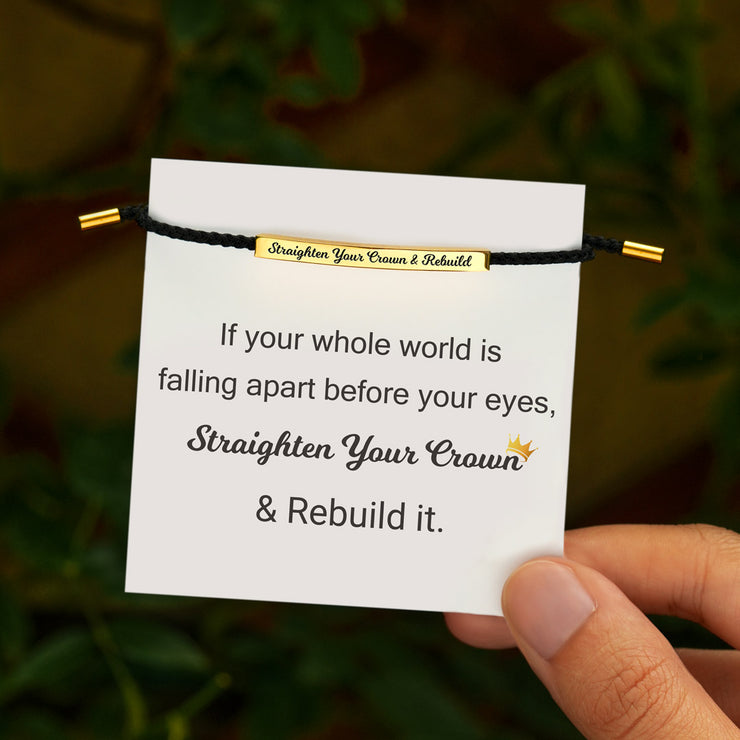 Straighten Your Crown & Rebuild
If your whole world is
falling apart before your eyes,
Straighten Your Crown
& Rebuild it.